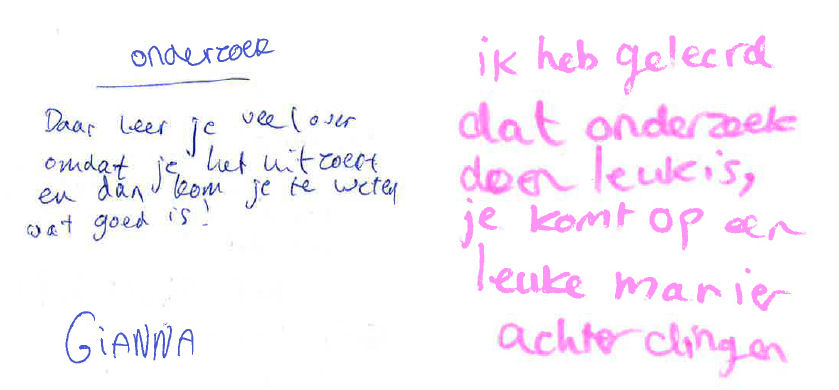 onderzoek
Daar leer je veel over
omdat je het uitzoekt
en dan kom je te weten
wat goed is!
GiANNA
ik heb geleerd
dat onderzoek
doen leuk is,
je komt op een
leuke manier
achter dingen